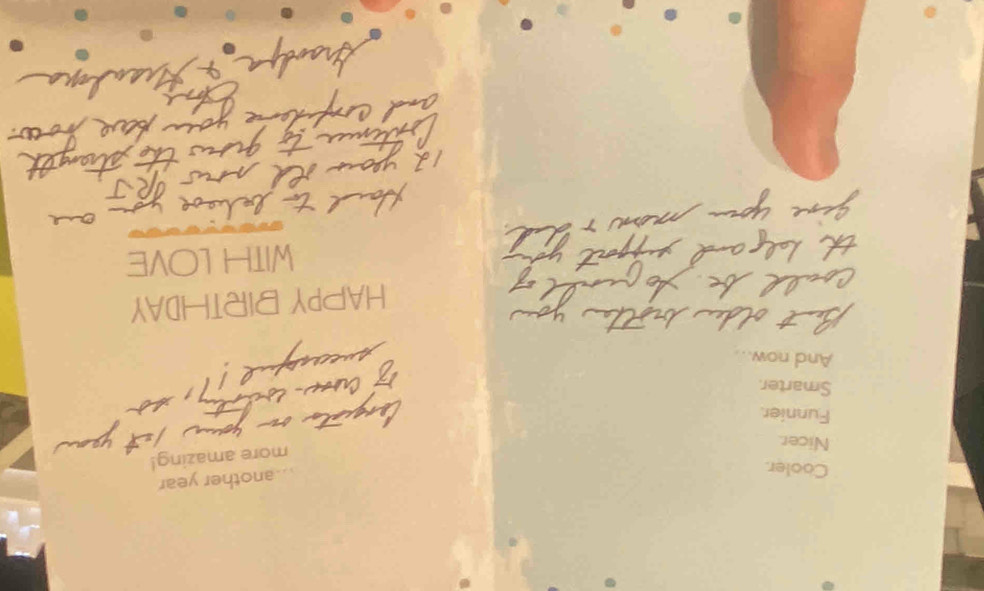 Cooler.
Nicer.
Funnier.
Smarter.
And now...
Best older brother you
could be. So proud of
the help and support you
give your mom + dad.
...another year
more amazing!
Congrats on your 1st year
of cross-country, so
successful!!
HAPPY BIRTHDAY
WITH LOVE
Hard to believe you are
12 years old now RJ
Continue to grow the strength
and confidence you have now.
Love
Grandpa & Grandma